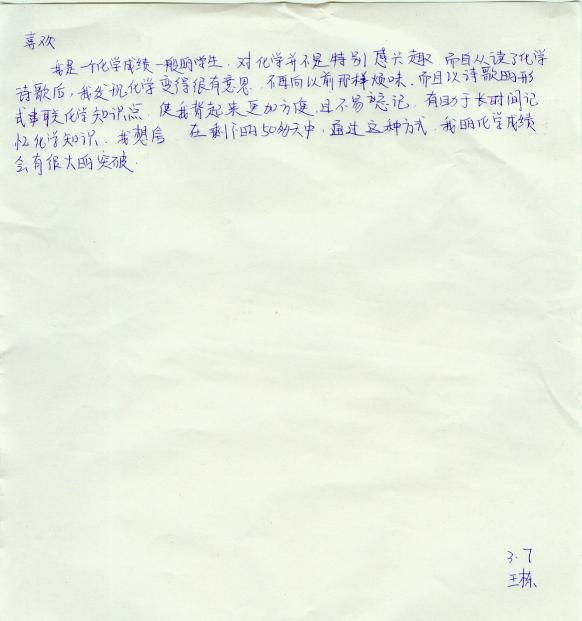 喜欢
我是一个化学成绩一般的学生.对化学并不是特别感兴趣.而自从读了化学
诗歌后,我发现化学变得很有意思.不再向以前那样烦味.而且以诗歌的形
式串联化学知识点.使我背起来更加方便.且不易忘记.有助于长时间记
忆化学知识.我想后 在剩下的50多天中,通过这种方式.我的化学成绩
会有很大的突破.
3.7
王栋